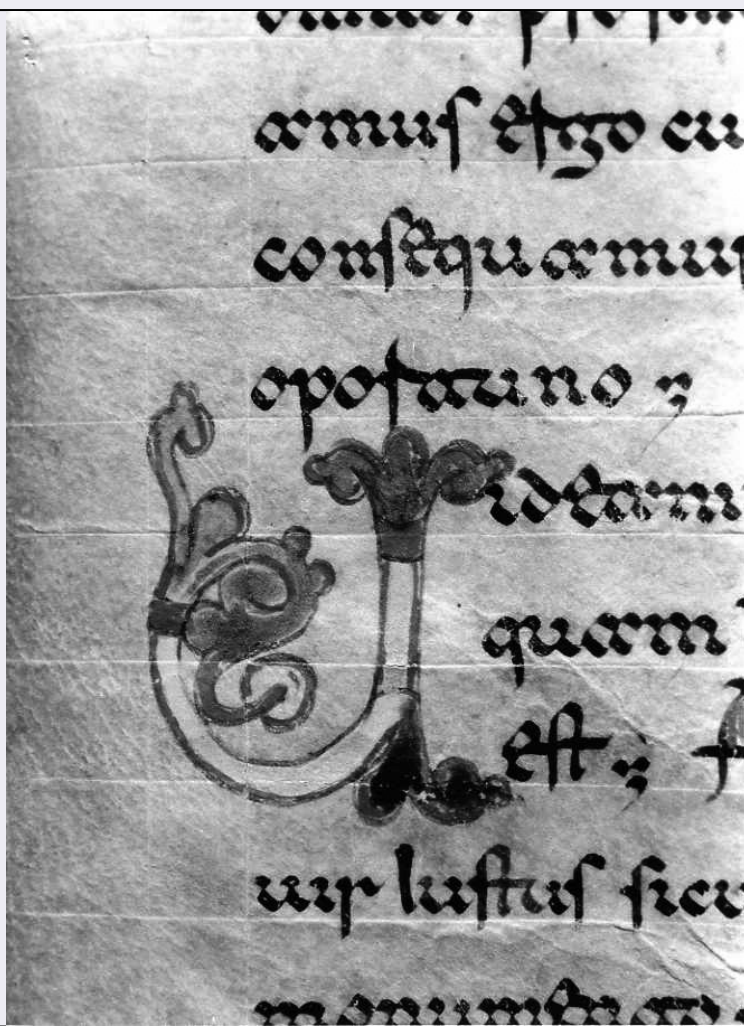 amus ergo cu
consequamur
oportuno
Uideam
quam
est
uir iustus sicu